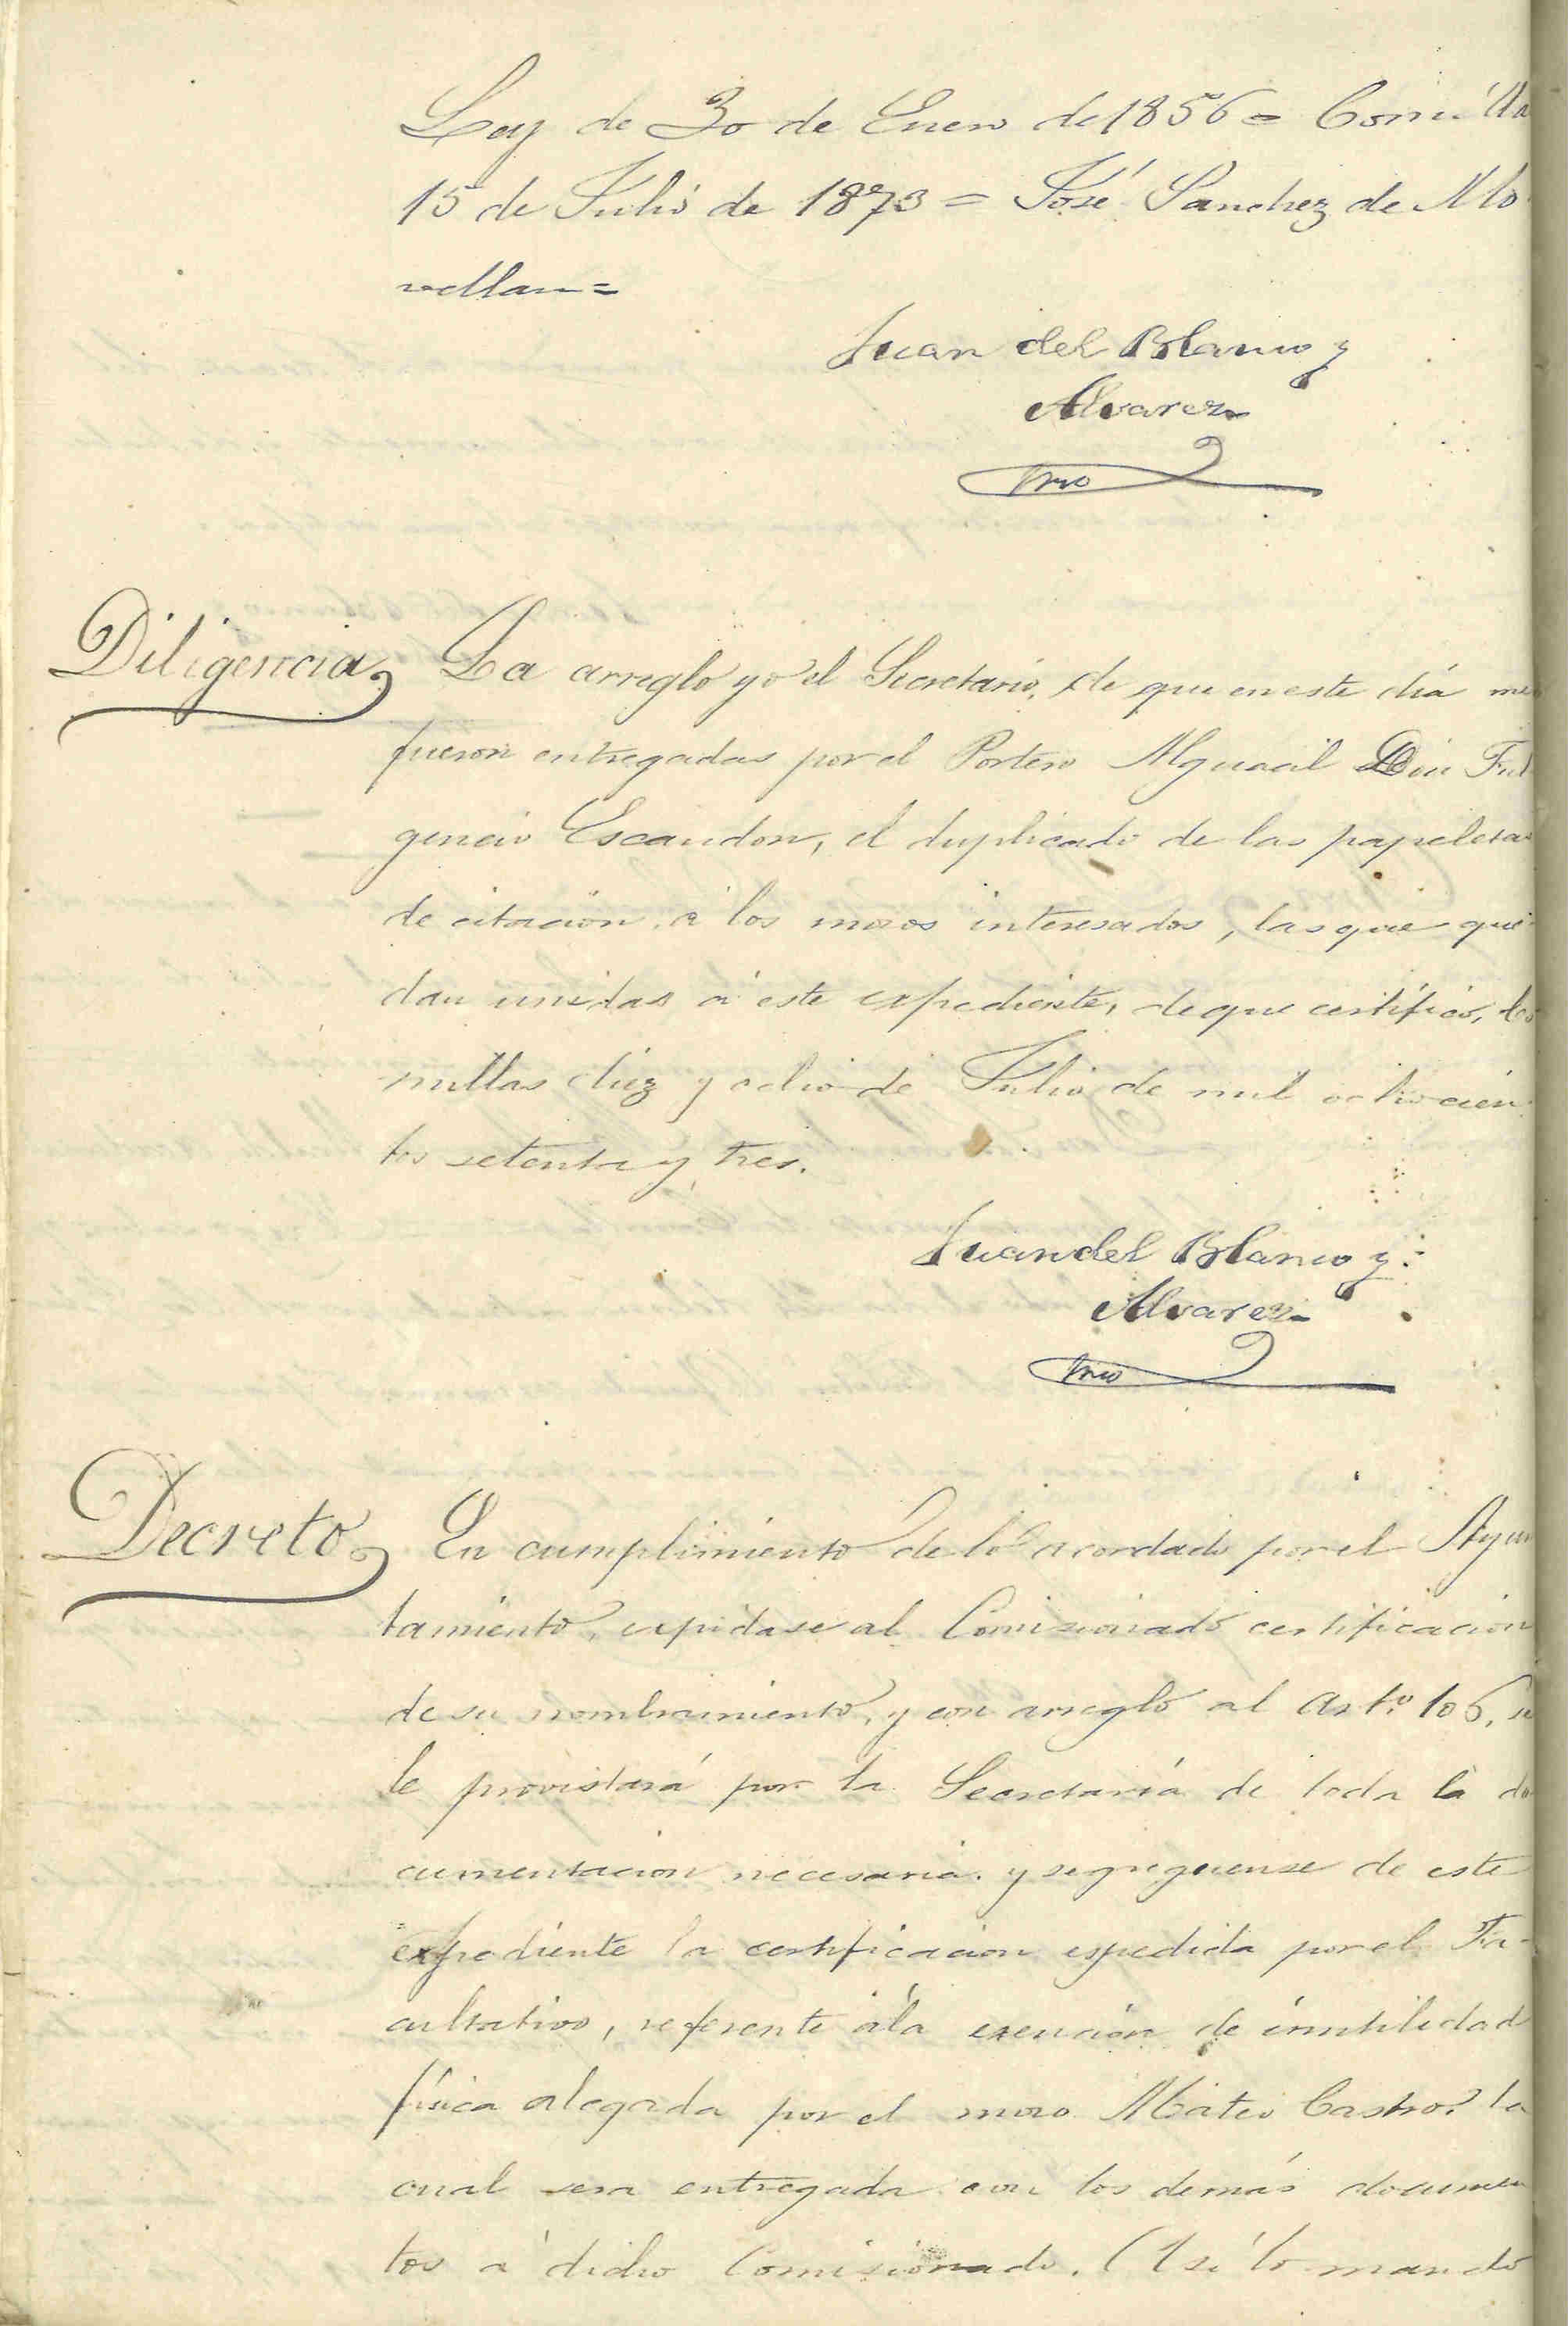 Ley de 30 de Enero de 1856 = Comilla
15 de Julio de 1873 = José Sanchez de Mo
vellan =
Juan del Blanco y
Alvarez
Srio
Diligencia, La arreglo yo el Secretario, de que en este día me
fueron entregadas por el Portero Alguacil Don Ful
gencio Escandon, el duplicado de las papeletas
de citación á los mozos interesados, las que que
dan unidas á este expediente, de que certifico, Co
millas diez y ocho de Julio de mil ochocien
tos setenta y tres.
Juan del Blanco y
Alvarez
Srio
Decreto, En cumplimiento de lo acordado por el Ayun
tamiento, expidase al Comisionado certificacion
de su nombramiento, y con arreglo al Artº 106, se
le provistará por la Secretaría de toda la do
cumentacion necesaria. y segreguense de este
expediente la certificacion espedida por el Fa-
cultativo, referente á la exención de inutilidad
física alegada por el mozo Mateo Castro, la
cual sera entregada con los demás documen
tos á dicho Comisionado. Así lo mandó